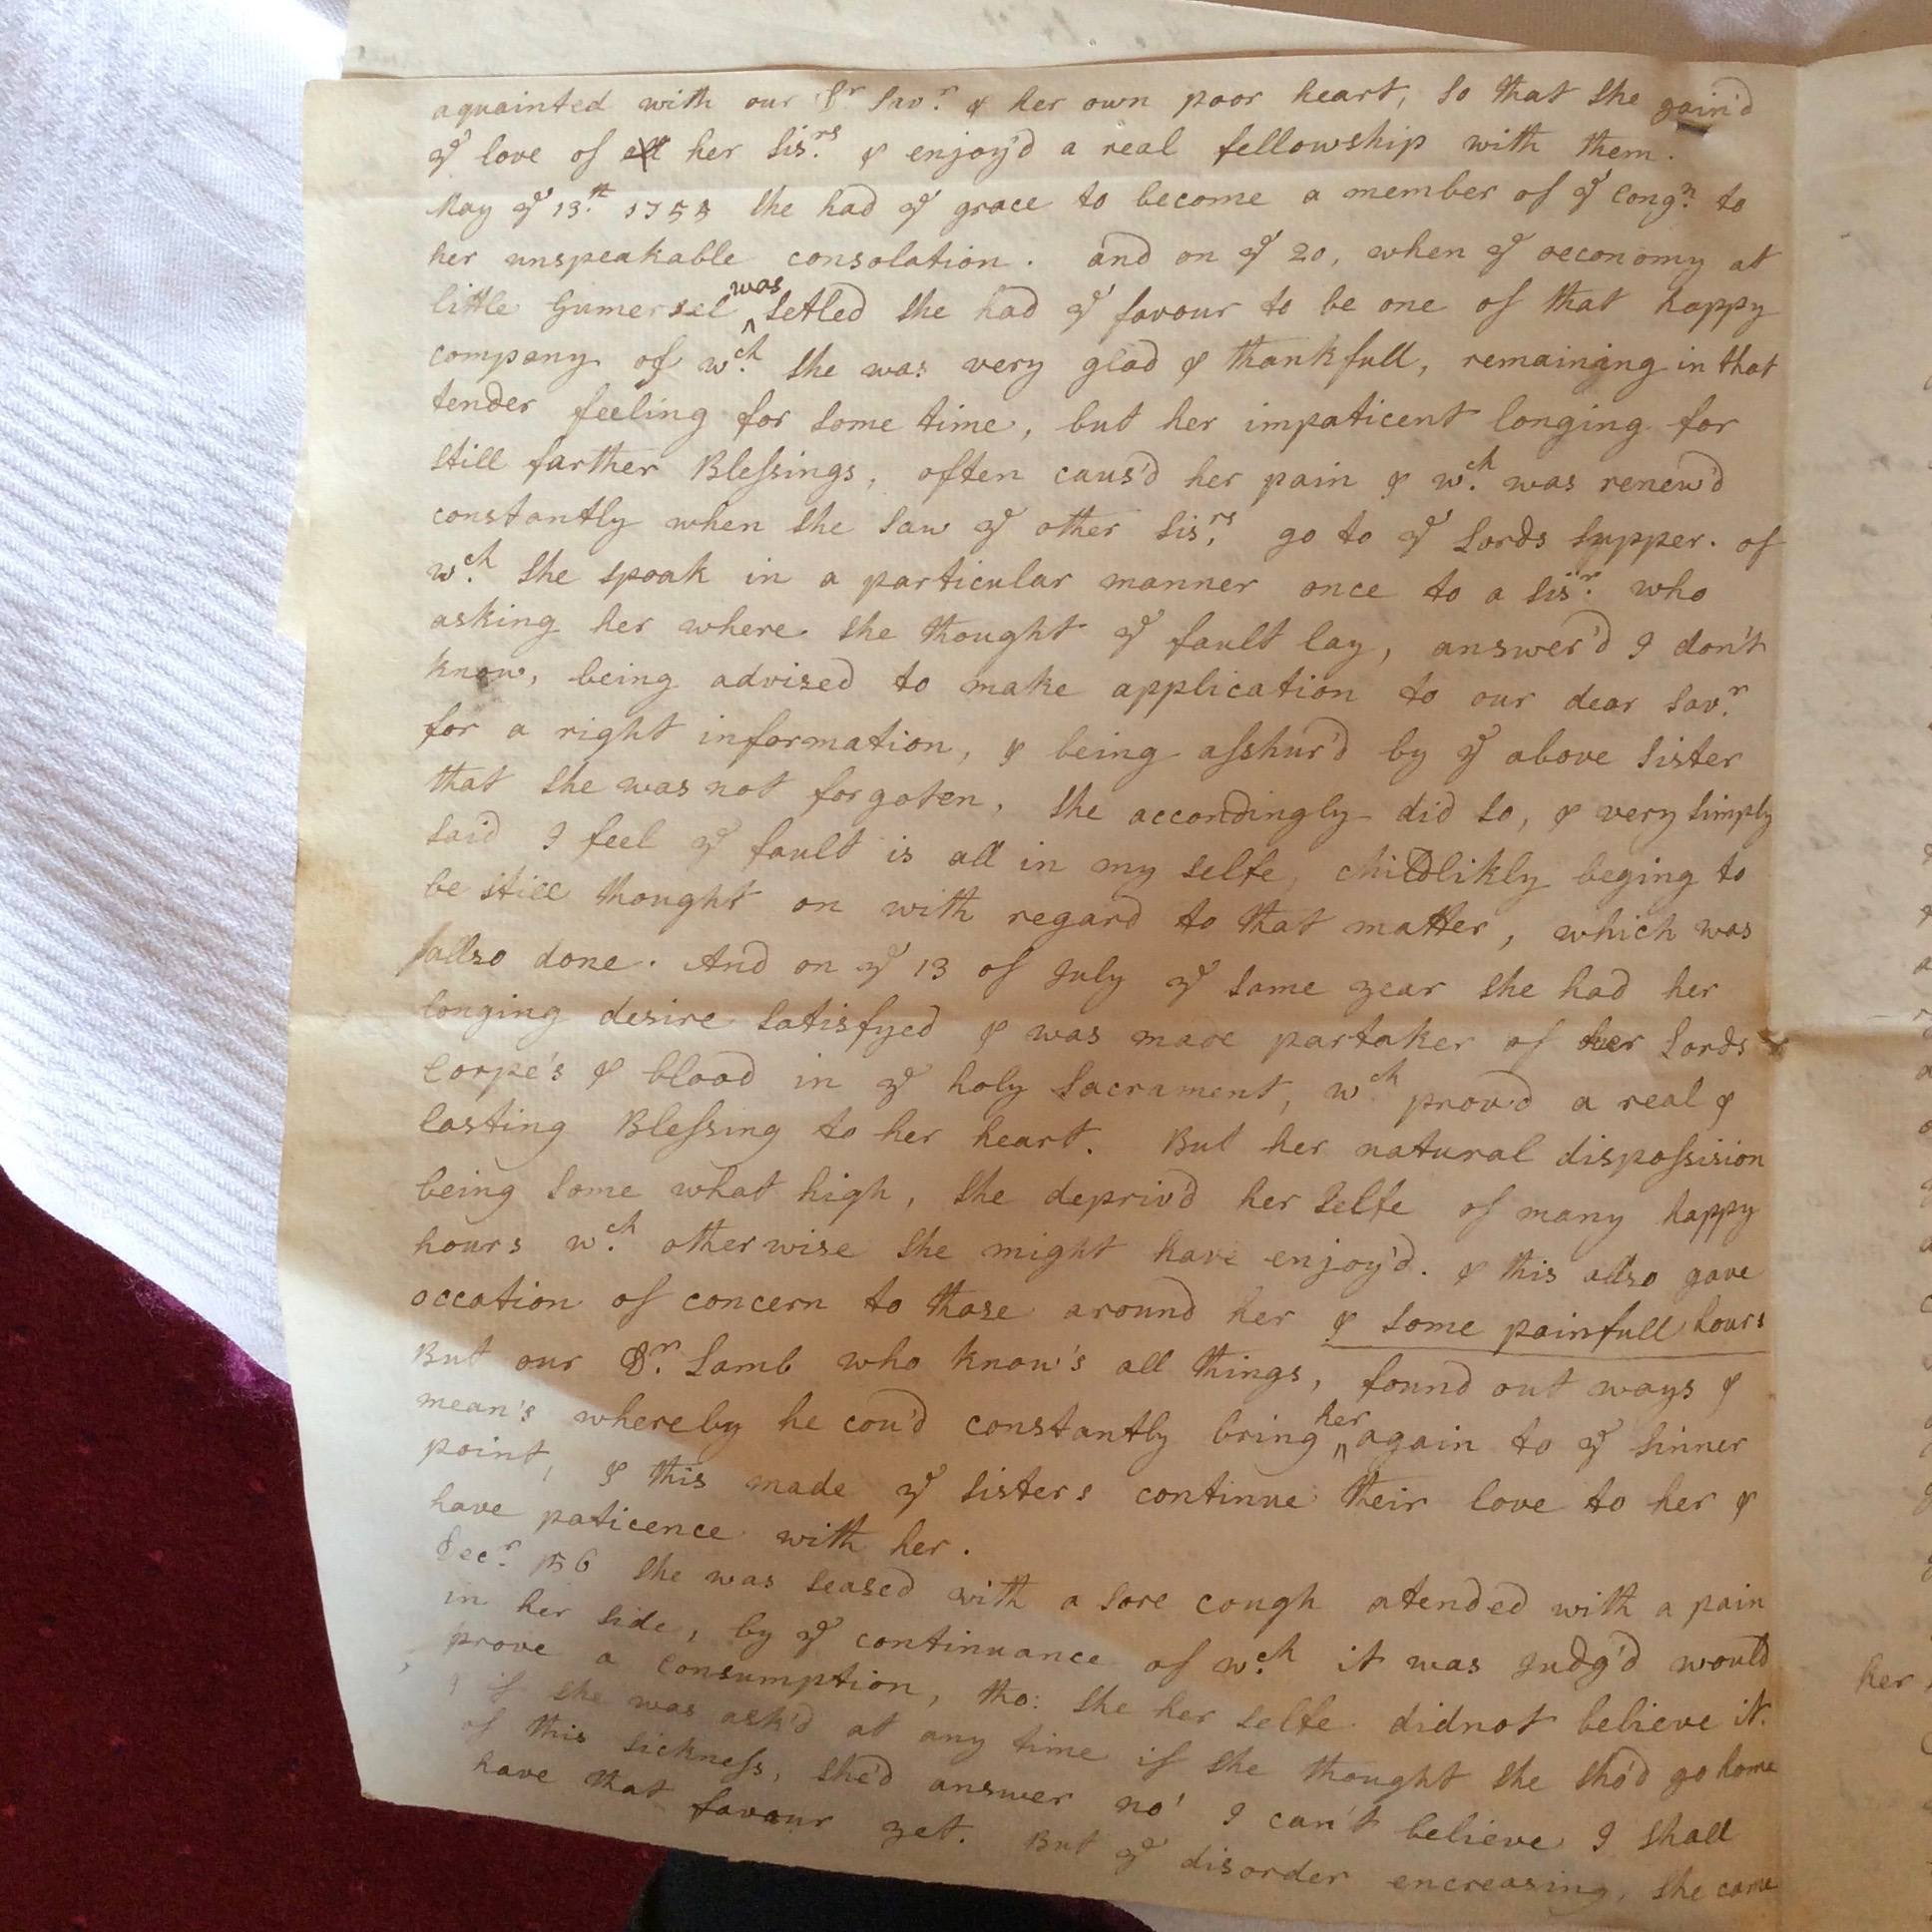 aquainted with our Dr Savr. & her own poor heart, so that she gain'd
ye love of all her Sisrs. & enjoy'd a real fellowship with them.
May ye 13.th 1755 she had ye grace to become a member of ye Congn. to
her unspeakable consolation. and on ye 20, when ye oeconomy at
little Gumersel was setled she had ye favour to be one of that happy
company of wch. she was very glad & thankfull, remaining in that
tender feeling for some time, but her impaticent longing for
still farther Blessings, often caus'd her pain & wch. was renew'd
constantly when she saw ye other Sisrs. go to ye Lords Supper. of
wch. she spoak in a particular manner once to a Sisr. who
asking her where she thought ye fault lay, answer'd I don't
know, being advised to make application to our dear Savr.
for a right information, & being asshur'd by ye above Sister
that she was not forgoten, she accordingly did so, & very simply
said I feel ye fault is all in my selfe, childlikly beging to
be still thought on with regard to that matter, which was
allso done. And on ye 13 of July ye same year she had her
longing desire satisfyed & was made partaker of her Lords
Corpe's & blood in ye holy Sacrament, wch. prov'd a real &
lasting Blessing to her heart. But her natural dispossision
being some what high, she depriv'd her selfe of many happy
hours wch. otherwise she might have enjoy'd. & this allso gave
occation of concern to those around her & some painfull hours
But our Dr. Lamb who know's all things, found out ways &
mean's whereby he cou'd constantly bring her again to ye sinner
point, & this made ye sisters continue their love to her &
have paticence with her.
Decr. 156 she was seased with a sore cough atended with a pain
in her side, by ye continuance of wch. it was judg'd would
prove a consumption, tho: she her selfe didnot believe it.
& if she was ask'd at any time if she thought she sho'd go home
of this sickness, she'd answer no' I can't believe I shall
have that favour yet. But ye disorder encreasing, she came
her